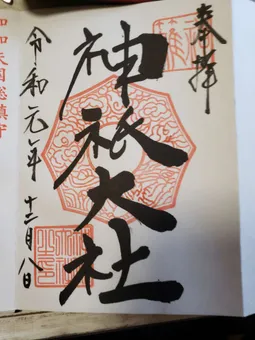 奉拝
神祇大社
令和元年十二月八日
総鎮守